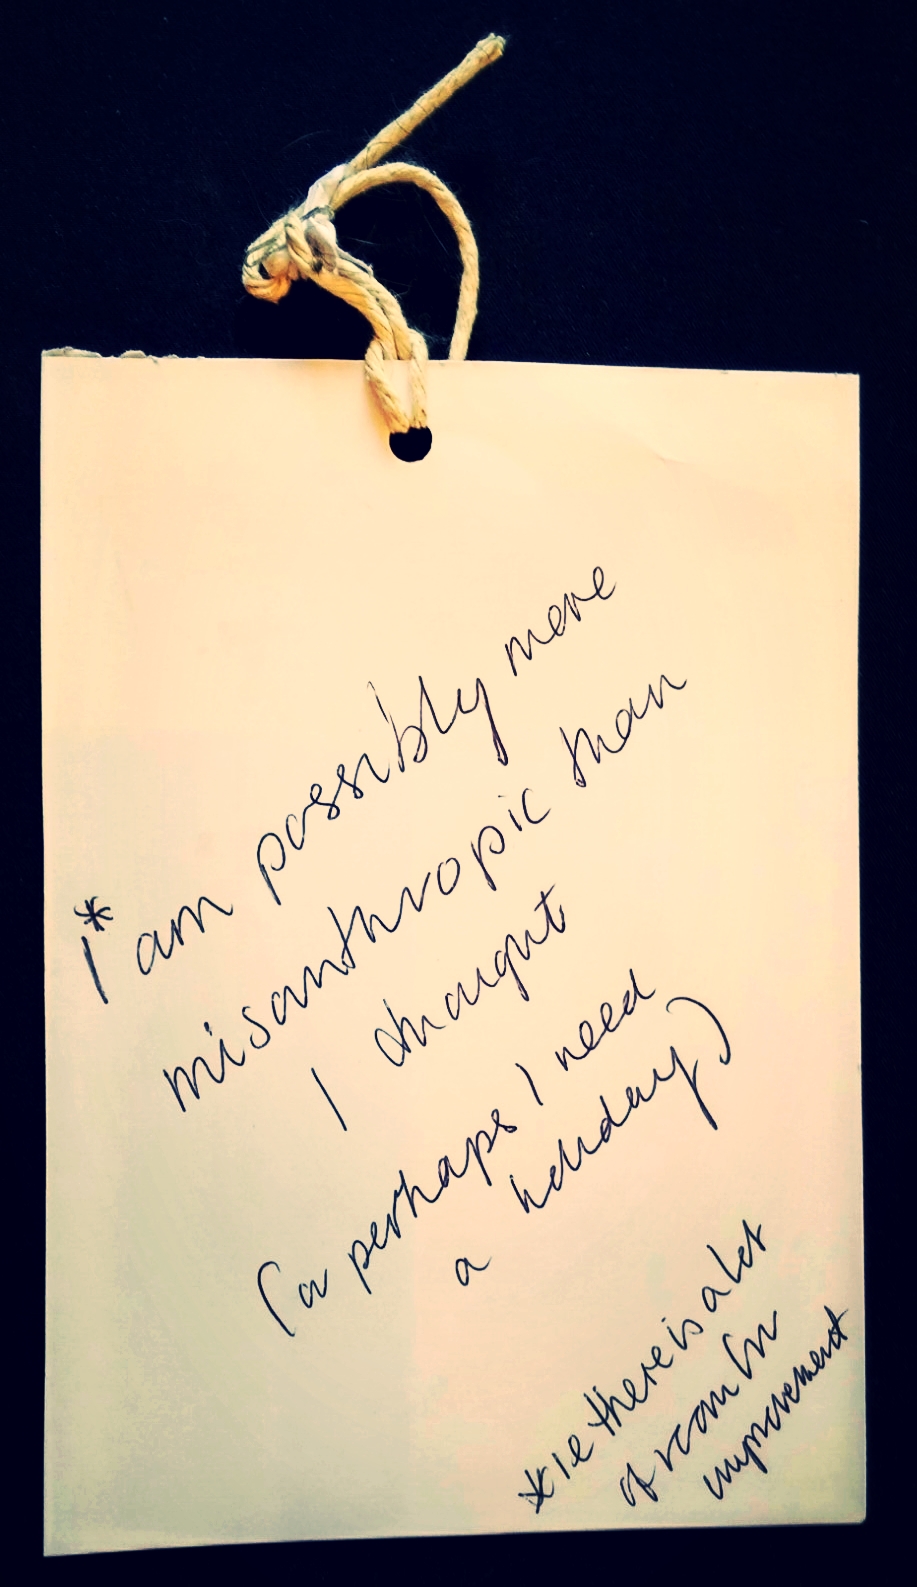 I* am possibly more
misanthropic than
I thought
(or perhaps I need
a holiday)
*ie there is a lot
of room for
improvement